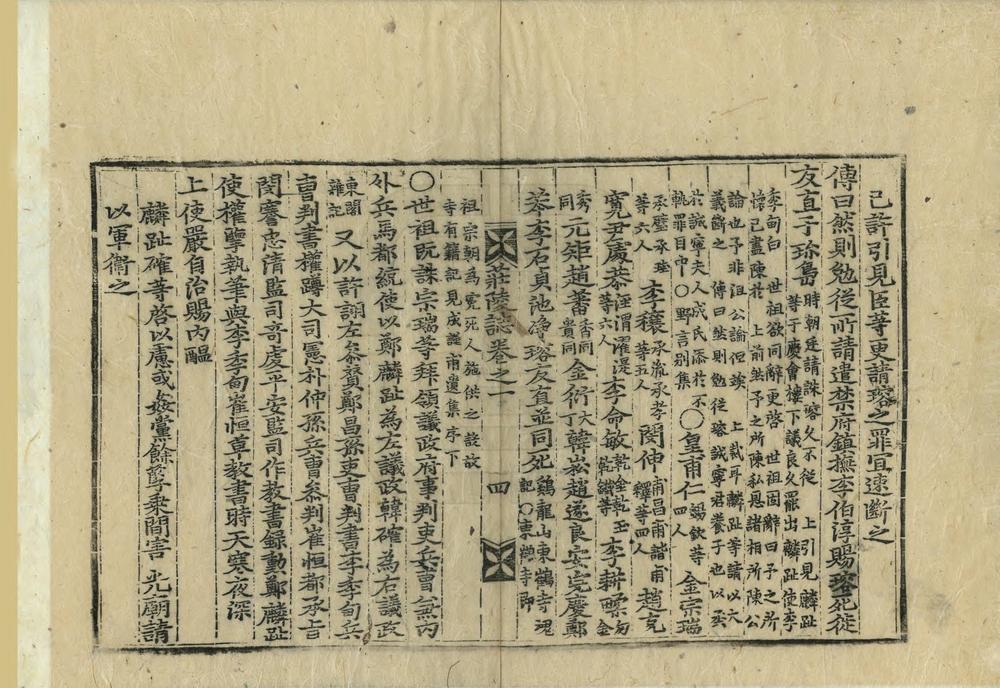 己許引見臣等更請瑢之罪宜速斷之
傳曰然則勉從所請遣禁府鎮撫李伯淳賜瑢死徙
友直于珍島時朝廷請誅瑢久不從 上引見麟趾
等于慶會樓下議良久罷出麟趾使李
季甸白 世祖欲同辭更啓 世祖固辭曰予之所
懷已盡陳於 上前然予之所陳私恩諸相所陳公
論也予非沮公論但竢 上執耳麟趾等請以大
義斷之 傳曰然則勉從瑢誠寧君養子也以烝
於誠寧夫人成氏添於不
軌罪目中○野言別集○皇甫仁錫欽等四人金宗瑞
承璧承珪
等六人李穰承瀛承孝
等五人閔伸甫昌甫諧甫
釋等四人趙克
寬尹處恭涇渭濯湜
等六人李命敏乾金乾玉
乾鐵等李耕㽥勿金
秀同元矩趙蕃香同
貴同金衍丁大韓崧趙遂良安完慶鄭
苯李石貞池淨瑢友直並同死鷄龍山東鶴寺魂
記○東鶴寺即
莊陵誌卷之一 四
祖宗朝爲冤死人施供之設故
寺有籍記見成謹甫遺集序下
○世祖旣誅宗瑞等拜領議政府事判吏兵曹兼內
外兵馬都統使以鄭麟趾爲左議政韓確爲右議政
東閣
雜記又以許詡左參贊鄭昌孫吏曹判書李季甸兵
曹判書權蹲大司憲朴仲孫兵曹參判崔恒都承旨
閔騫忠淸監司奇虔平安監司作敎書錄勳鄭麟趾
使權擥執筆與李季甸崔恒草敎書時天寒夜深
上使嚴自治賜內醞
麟趾確等啓以慮或姦黨餘孽乘間害 光廟請
以軍衛之